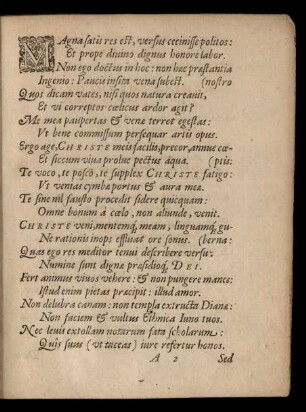 MAgna satis res est, versus cecinisse politos:
Et prope divino dignus honore labor.
Non ego doctus in hoc: non hæc præstantia
Ingenio: Paucis insita vena subest. (nostro
Quos dicam vates, nisi quos natura creavit,
Et vi correptos cœlicus ardor agit?
Me mea paupertas & venæ terret egestas:
Vt bene commissum persequar artis opus.
Ergo age, CHRISTE meis facilis, precor, annue cœ-
Et siccum viva prolue pectus aqua. (ptis:
Te voco, te posco, te supplex CHRISTE fatigo:
Vt venias cymbæ portus & aura meæ.
Te sine nil fausto procedit sidere quicquam:
Omne bonum à cœlo, non aliunde, venit.
CHRISTE veni, mentemq́, meam, linguamq́, gu-
Ne rationis inops effluat ore sonus. (berna:
Quas ego res meditor tenui describere versu:
Numine sunt dignæ præsidioq́, DEI.
Fert animus vivos vehere: & non pungere manes:
Istud enim pietas præcipit: illud amor.
Non delubra canam: non templa extructa Dianæ:
Non faciem & vultus Ethnica Iuno tuos.
Nec levis extollam notarum fata scholarum:
Quîs suus (ut taceas) iure refertur honos.
A 2 Sed